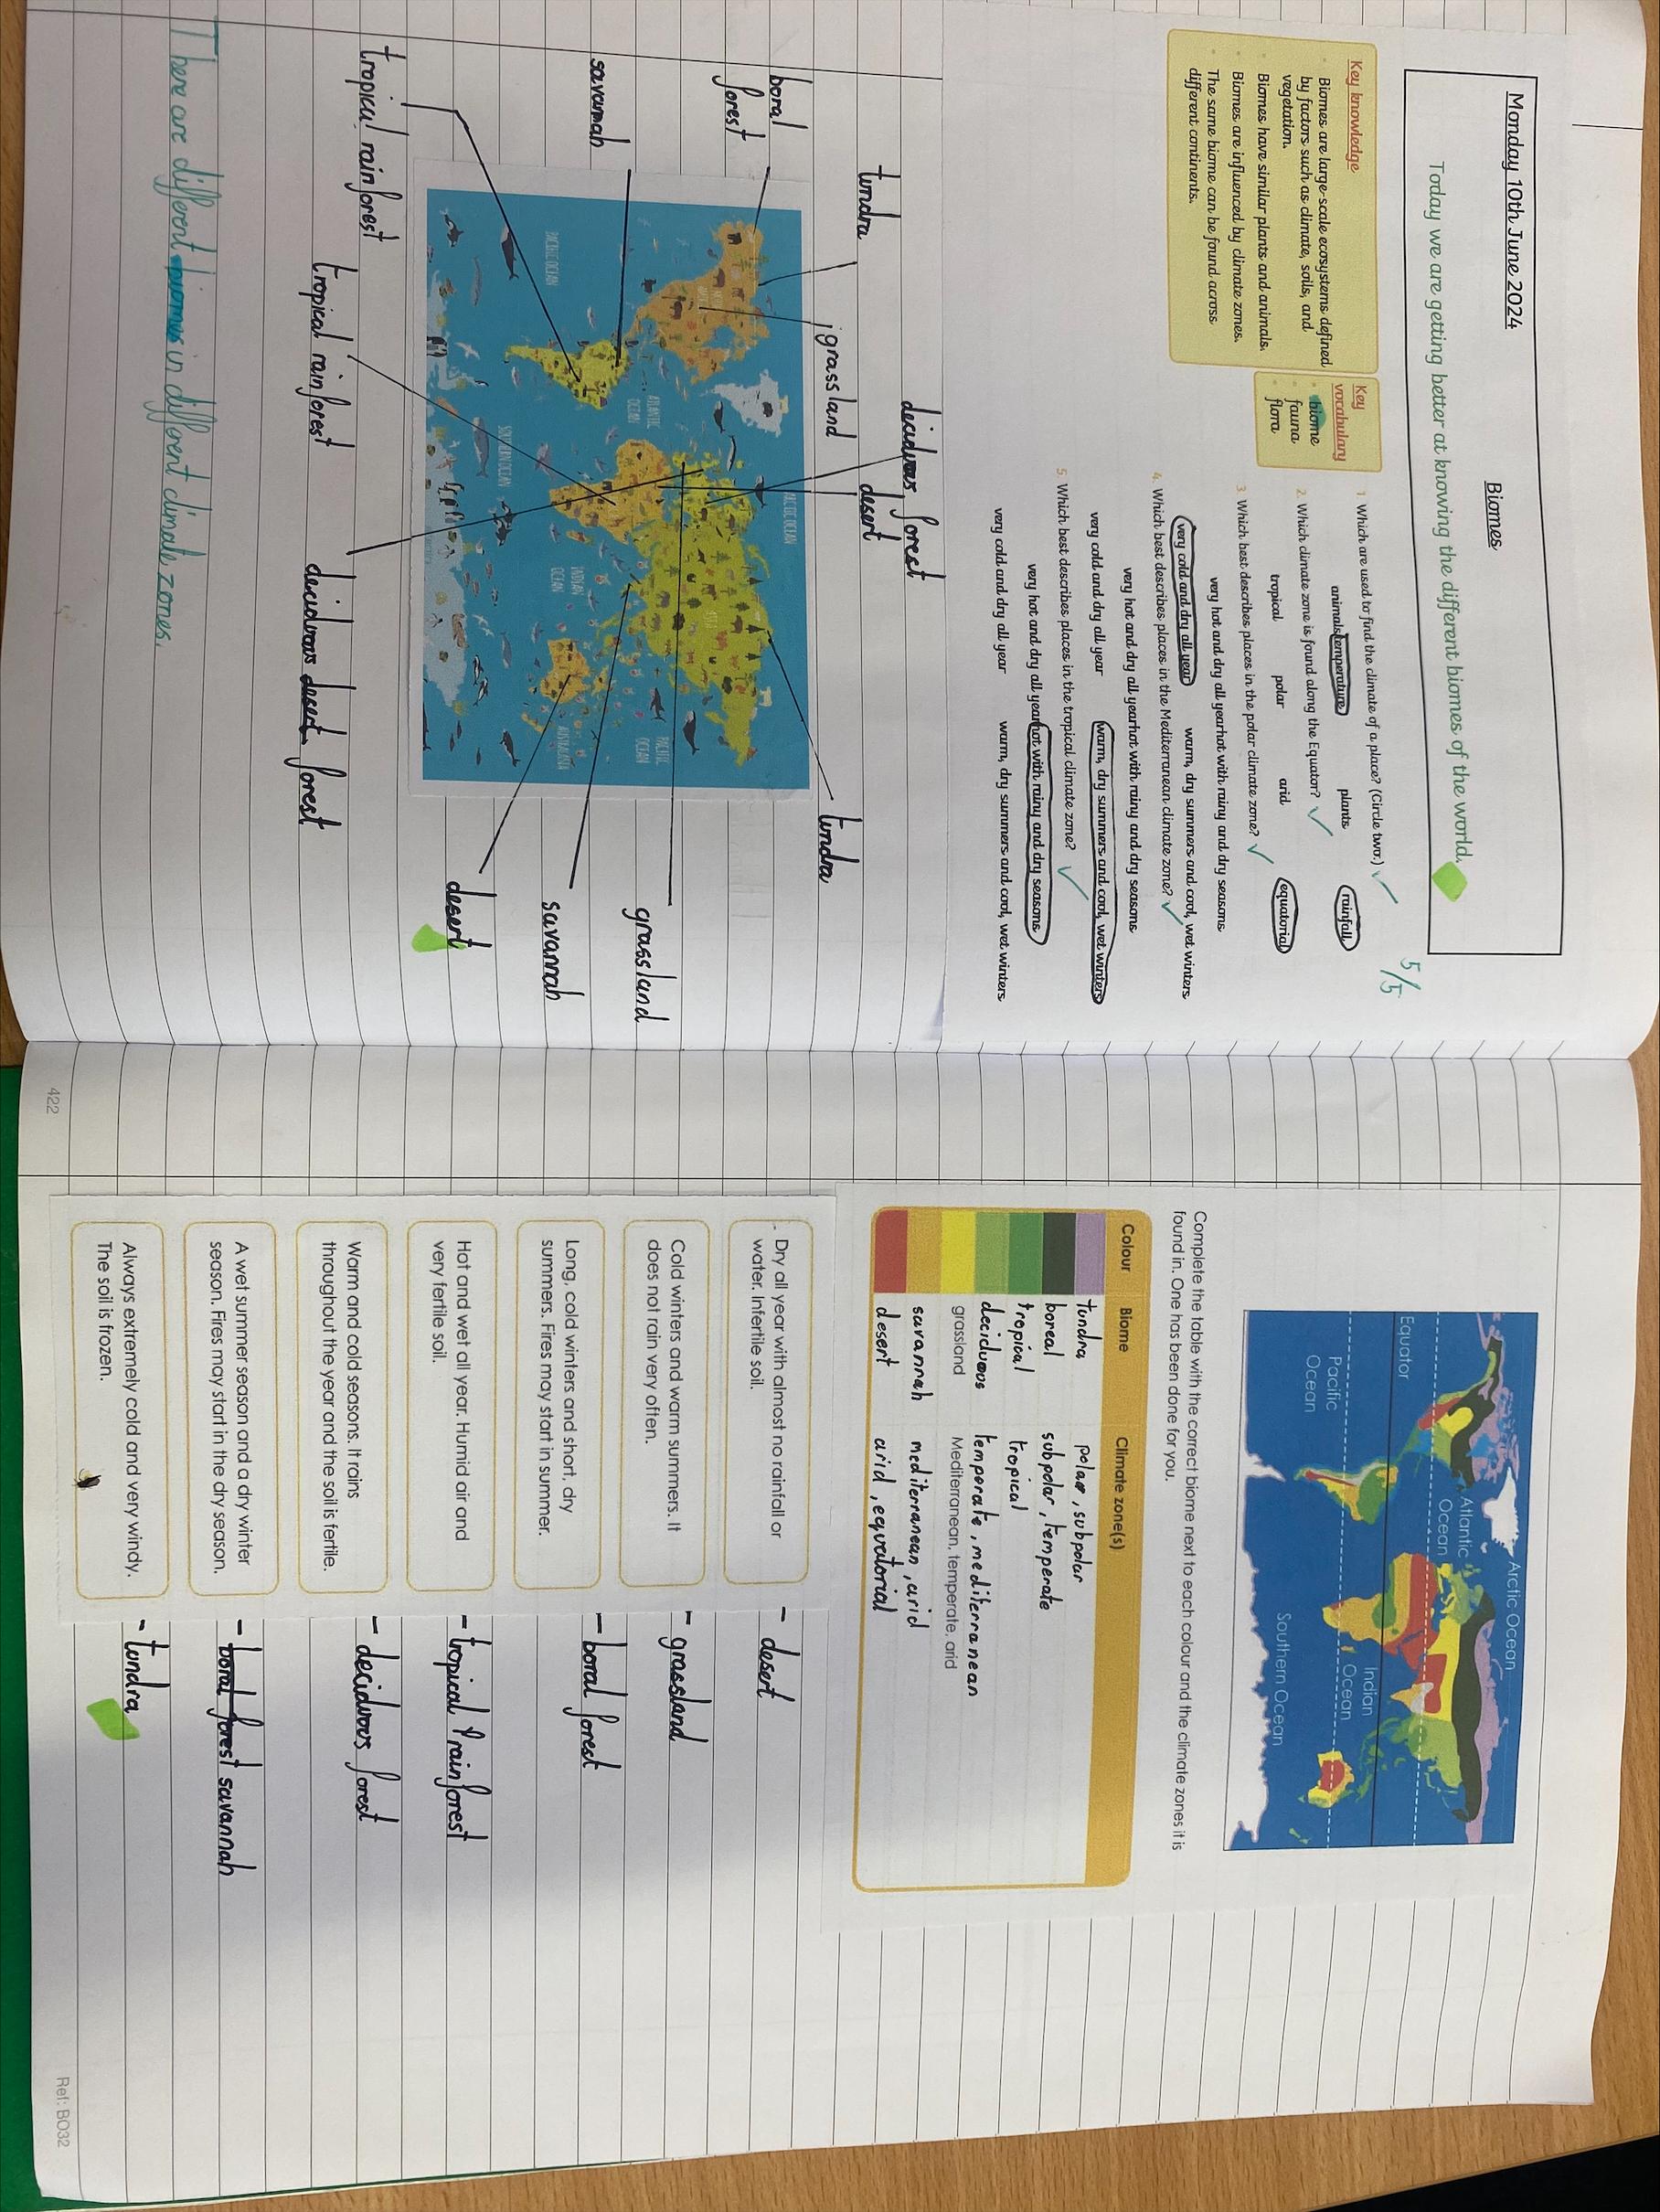 Monday 10th June 2024
Biomes
Today we are getting better at knowing the different biomes of the world.
5/5
Key knowledge
Biomes are large-scale ecosystems defined
by factors such as climate, soils, and
vegetation.
Biomes have similar plants and animals.
Biomes are influenced by climate zones.
The same biome can be found across
different continents.
Key
vocabulary
biome
fauna
flora
1 Which are used to find the climate of a place? (Circle two.)
animals temperature plants rainfall
2. Which climate zone is found along the Equator?
tropical polar arid equatorial
3 Which best describes places in the polar climate zone?
very hot and dry all year hot with rainy and dry seasons
very cold and dry all year warm, dry summers and cool, wet winters
4. Which best describes places in the Mediterranean climate zone?
very hot and dry all year hot with rainy and dry seasons
very cold and dry all year warm, dry summers and cool, wet winters
5. Which best describes places in the tropical climate zone?
very hot and dry all year hot with rainy and dry seasons
very cold and dry all year warm, dry summers and cool, wet winters
deciduos forest
tundra
desert
grassland
tundra
boral
forest
savannah
ARCTIC OCEAN
ATLANTIC
OCEAN
PACIFIC OCEAN
ASIA
PACIFIC
OCEAN
INDIAN
OCEAN
AUSTRALASIA
SOUTHERN OCEAN
grassland
savannah
desert
tropical rainforest
tropical rainforest
deciduous desert forest
There are different biomes in different climate zones.
Arctic Ocean
Atlantic
Ocean
Equator
Pacific
Ocean
Indian
Ocean
Southern Ocean
Complete the table with the correct biome next to each colour and the climate zones it is
found in. One has been done for you.
Colour Biome Climate zone(s)
tundra polar, subpolar
boreal subpolar, temperate
tropical tropical
deciduous temperate, mediterranean
grassland Mediterranean, temperate, arid
savannah mediterranean, arid
desert arid, equatorial
Dry all year with almost no rainfall or
water. Infertile soil.
- desert
Cold winters and warm summers. It
does not rain very often.
- grassland
Long, cold winters and short, dry
summers. Fires may start in summer.
- boral forest
Hot and wet all year. Humid air and
very fertile soil.
- tropical rainforest
Warm and cold seasons. It rains
throughout the year and the soil is fertile.
- deciduos forest
A wet summer season and a dry winter
season. Fires may start in the dry season.
- boral forest savannah
Always extremely cold and very windy.
The soil is frozen.
- tundra
422
Ref: BO32